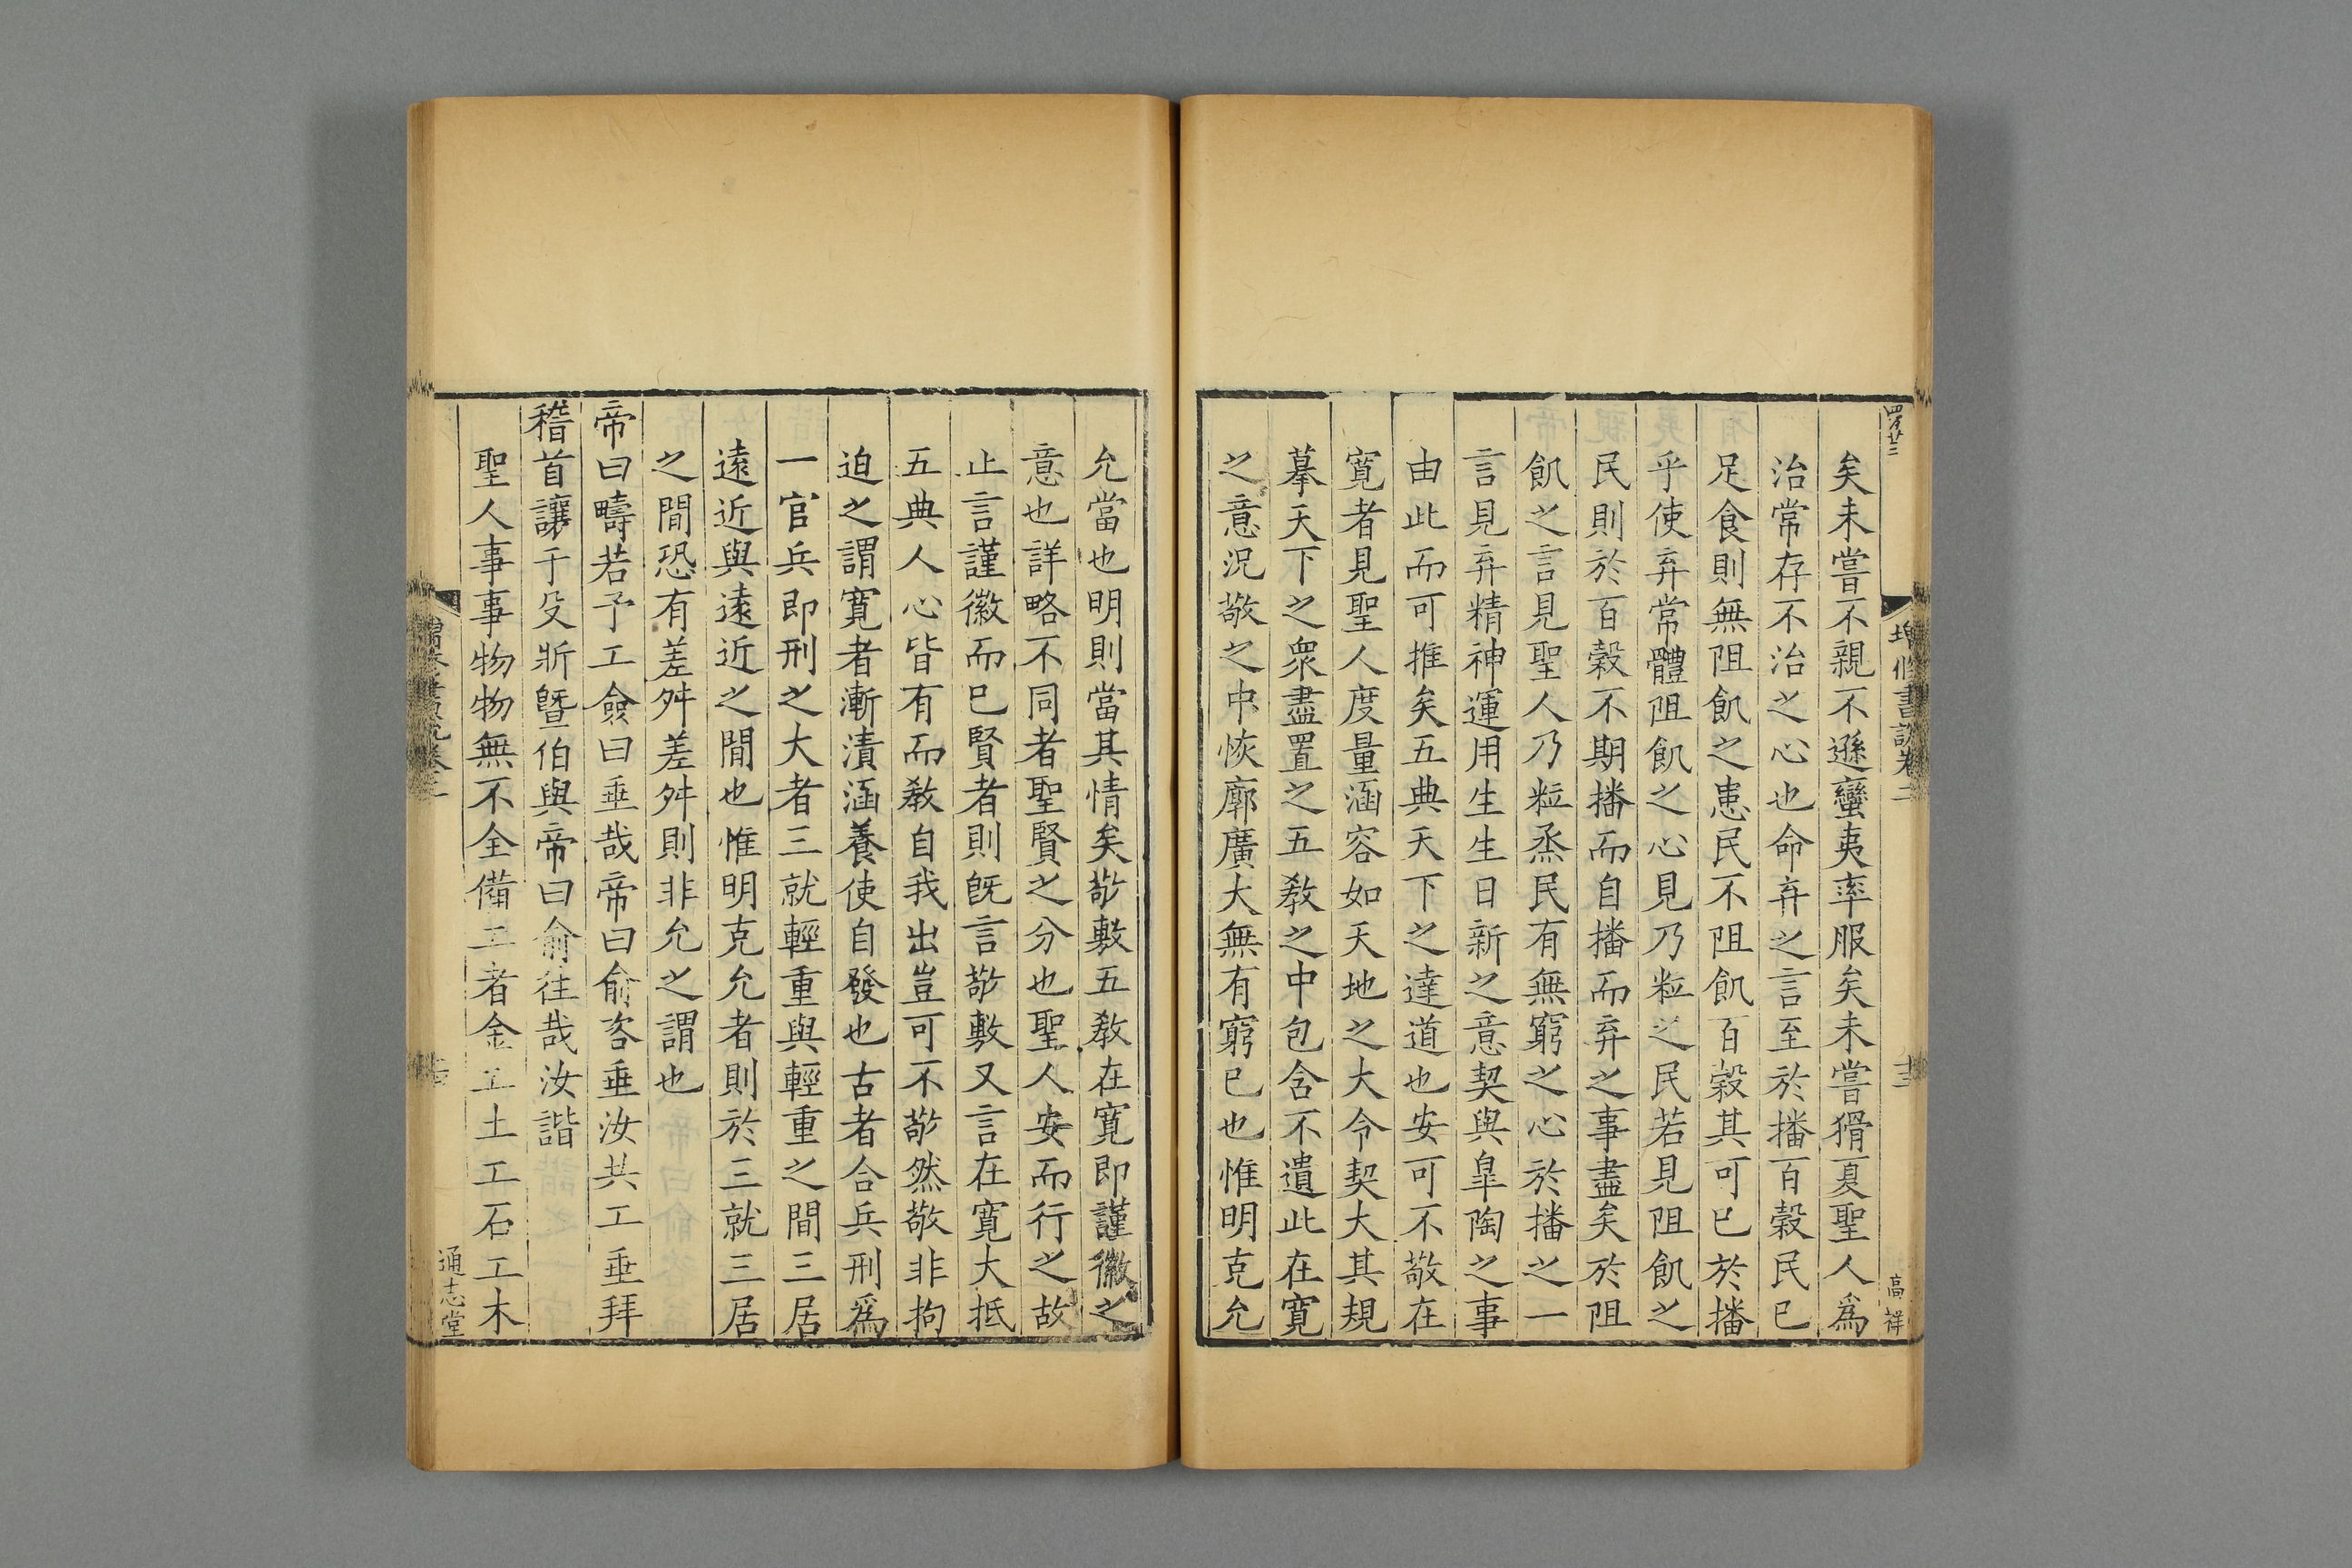 矣未嘗不親不遜蠻夷率服矣未嘗猾夏聖人爲
治常存不治之心也命弃之言至於播百穀民已
足食則無阻飢之患民不阻飢百穀其可已於播
乎使弃常體阻飢之心見乃粒之民若見阻飢之
民則於百穀不期播而自播而弃之事盡矣於阻
飢之言見聖人乃粒烝民有無窮之心於播之一
言見弃精神運用生生日新之意契與皐陶之事
由此而可推矣五典天下之達道也安可不敬在
寛者見聖人度量涵容如天地之大令契大其規
摹天下之衆盡置之五敎之中包含不遺此在寛
之意況敬之中恢廓廣大無有窮已也惟明克允
增修書說卷二
高祥
允當也明則當其情矣敬敷五敎在寛即謹徽之
意也詳略不同者聖賢之分也聖人安而行之故
止言謹徽而已賢者則旣言敬敷又言在寛大抵
五典人心皆有而敎自我出豈可不敬然敬非拘
迫之謂寛者漸漬涵養使自發也古者合兵刑爲
一官兵即刑之大者三就輕重與輕重之間三居
遠近與遠近之間也惟明克允者則於三就三居
之間恐有差舛差舛則非允之謂也
帝曰疇若予工僉曰垂哉帝曰俞咨垂汝共工垂拜
稽首讓于殳斨曁伯與帝曰俞往哉汝諧
聖人事事物物無不全備工者金工土工石工木
通志堂